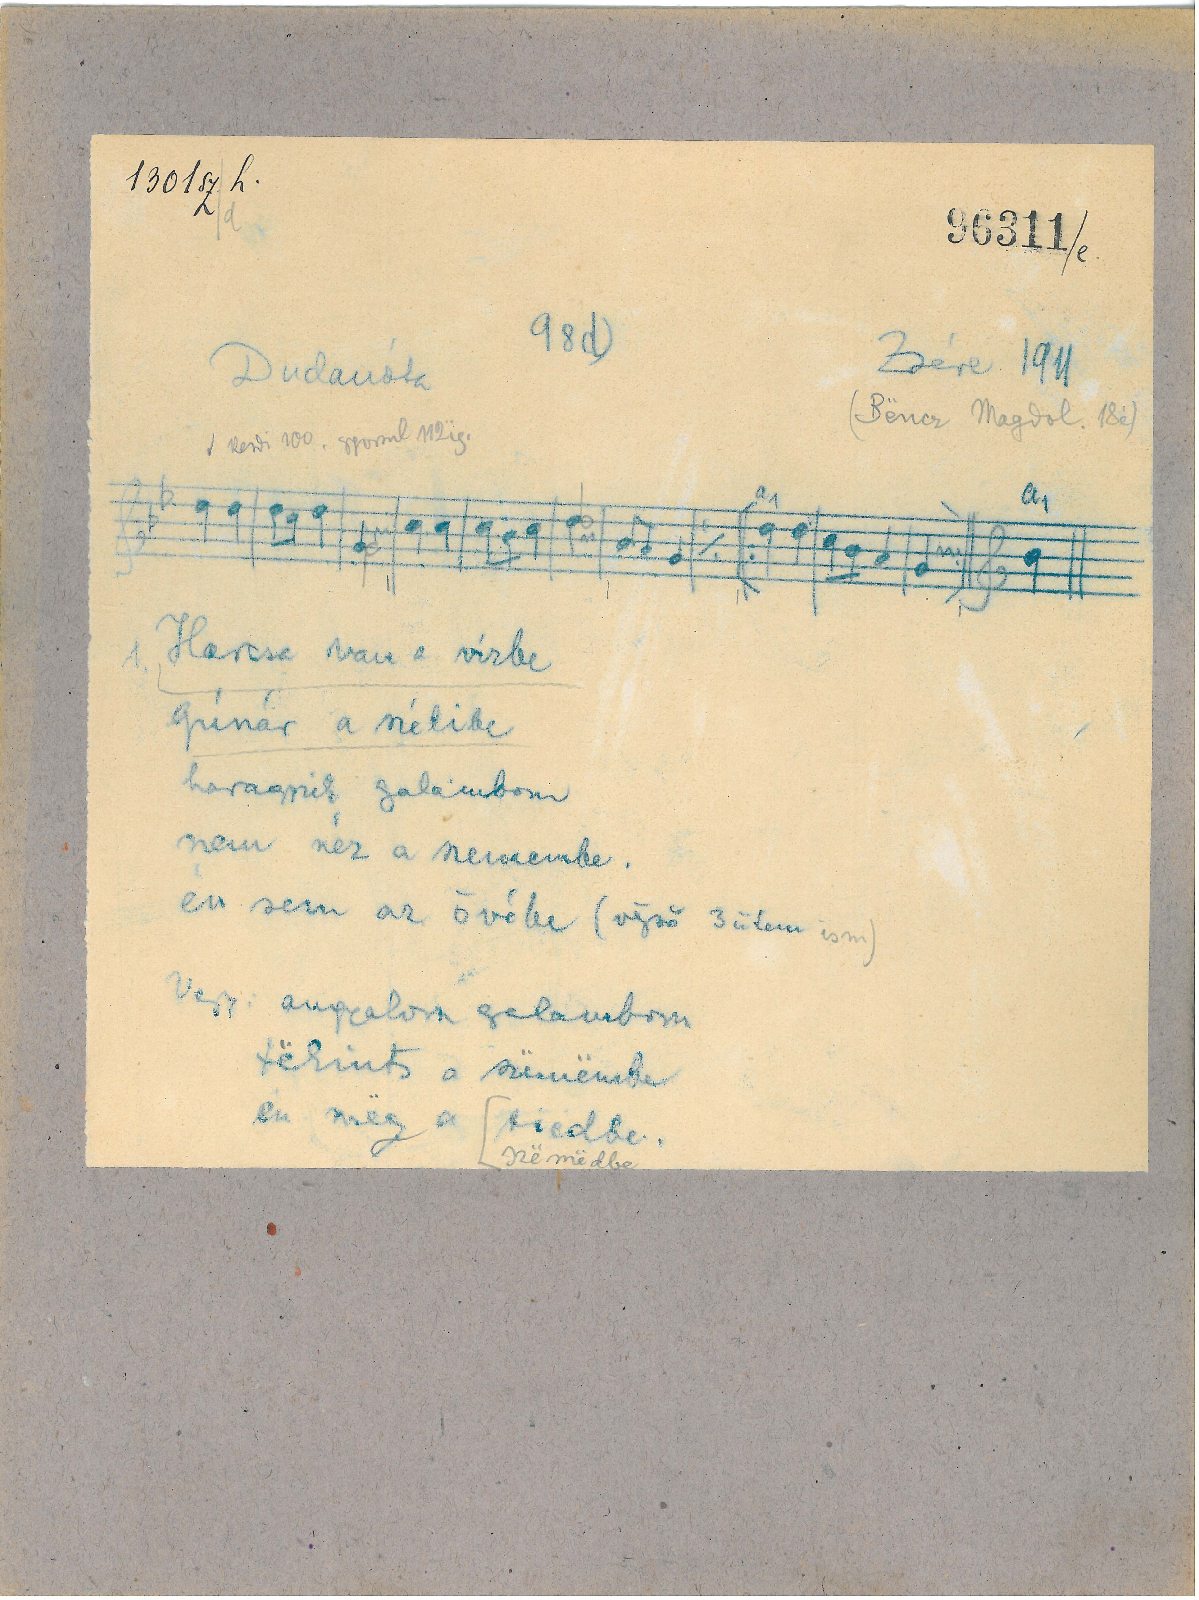 1301 sz h.
/d
96311/e.
98d)
Dudanóta
Zsére 1911
(Bëncz Magdol. 18é)
kezdi 100. gyorsul 112ig.
a1
a1
1. Harcsa van a vízbe
gúnár a szélibe
haragszik galambom
nem néz a szemembe.
én sem az övébe (végső 3 ütem ism)
Vagy: angyalom galambom
tëkints a szëmëmbe
én mëg a tiedbe.
szëmëdbe